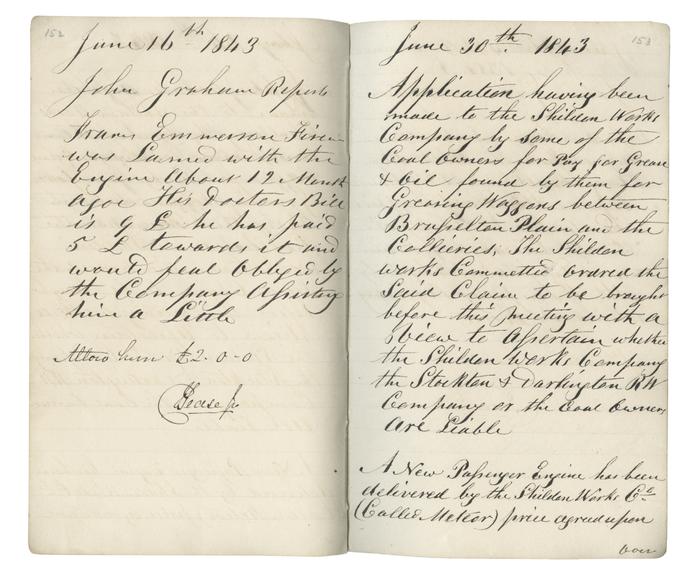 152
June 16th 1843
John Graham Reports
Frans Emmerson Firem
was Lamed with the
Engine About 12 Month
agoe His Doctors Bill
is 9 £ he has paid
5 £ towards it and
would feal Obliged by
the Company Assisting
him a Little
Allow him £2-0-0
Pease Jr
153
June 30th 1843
Application having been
made to the Shildon Works
Company by some of the
Coal Owners for Pay for Grease
& Oil found by them for
Greasing Waggons between
Brusselton Plain and the
Collieries, The Shildon
works Committee ordered the
Said Claim to be brought
before this meeting with a
View to Assertain whether
the Shildon Works Company
the Stockton & Darlington RW
Company or the Coal Owners
are Liable
A New Passenger Engine has been
delivered by the Shildon Works Co
(Called Meteor) price agreed upon